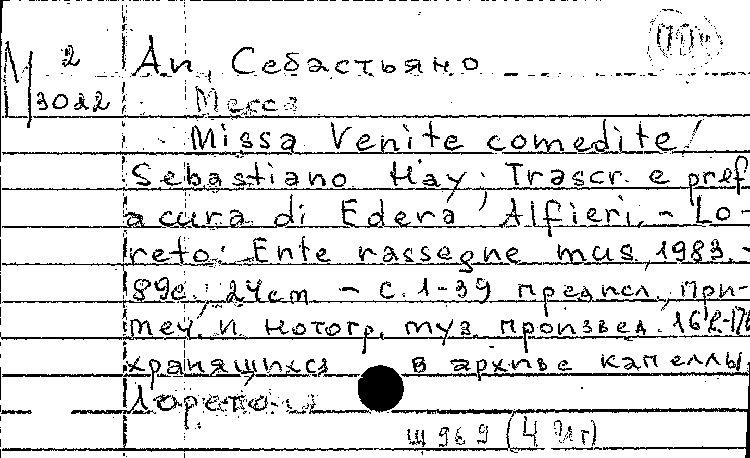 М 2 Ап, Себастьяно
3022 Месса
Missa Venite comedite /
Sebastiano Hay; Trascr. e pref.
a cura di Edera Alfieri. - Lo-
reto: Ente rassegne mus, 1983. -
89с.; 24cm. - С. 1-39 предисл., при-
меч. и нотогр. муз. произвед.
хранящихся в архиве капеллы
Лорето
Ш 969 (4 Ит)